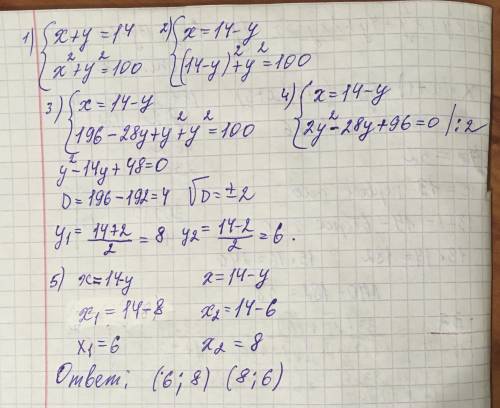 1) { x+y=14 2) { x=14-y
x²+y²=100 (14-y)²+y²=100
3) { x=14-y 4) { x=14-y
196-28y+y²+y²=100 2y²-28y+96=0 |:2
y²-14y+48=0
D=196-192=4 √D=±2
y₁=(14+2)/2=8 y₂=(14-2)/2=6.
5) x=14-y x=14-y
x₁=14-8 x₂=14-6
x₁=6 x₂=8
Ответ: (6;8) (8;6)